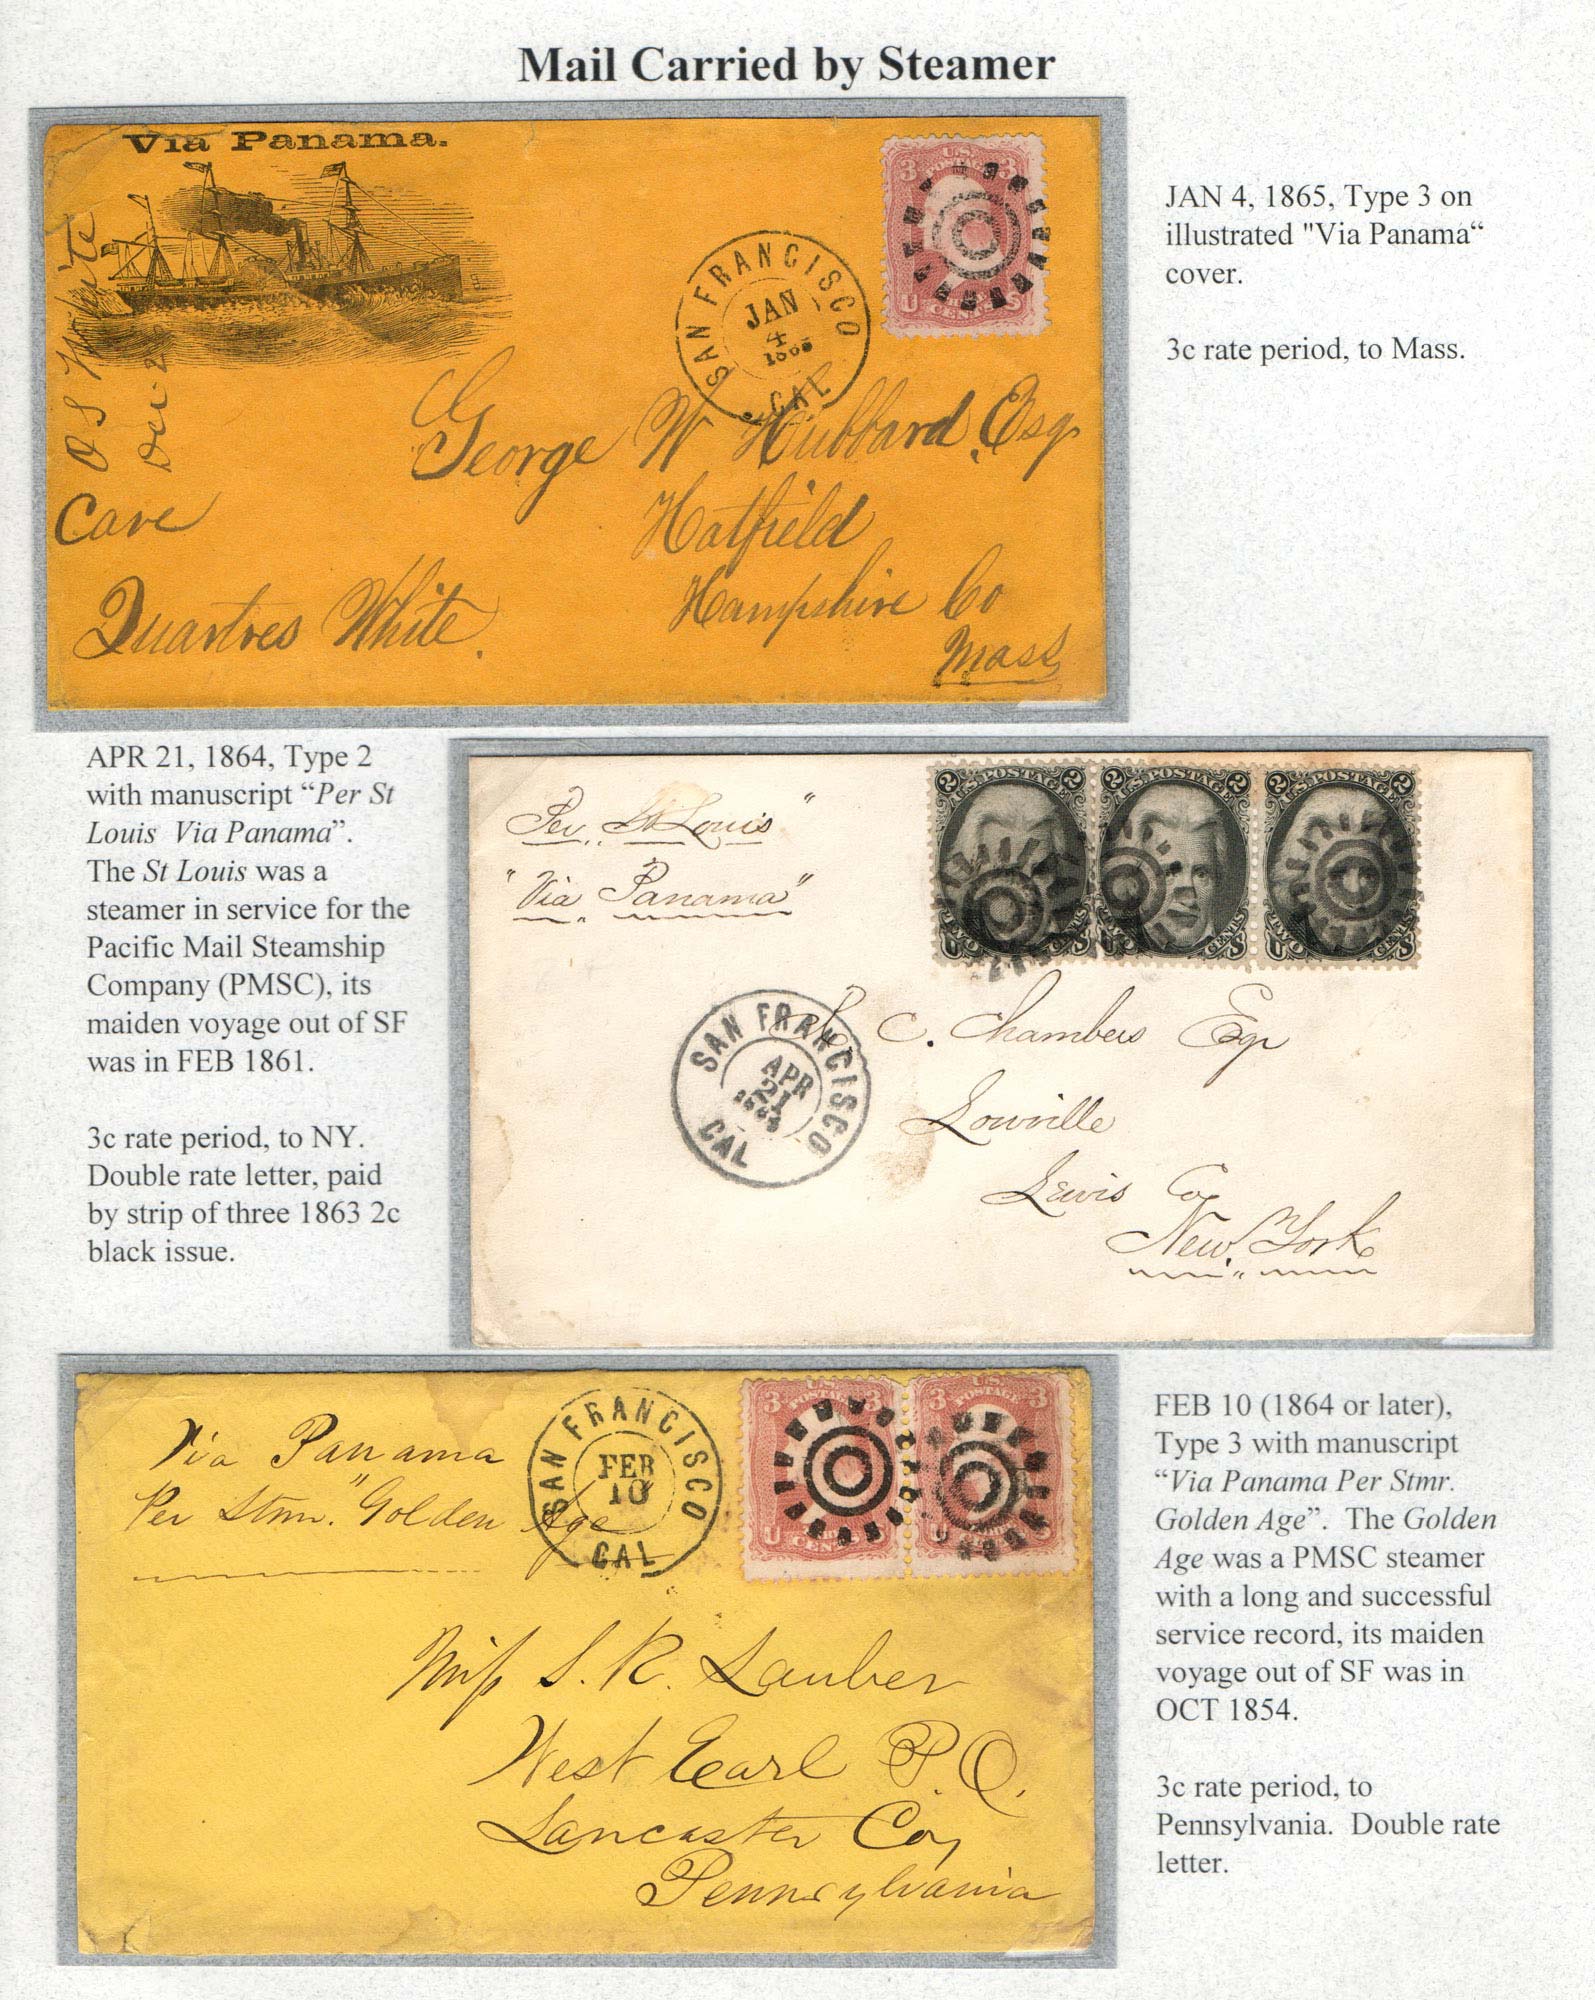 Mail Carried by Steamer
Via Panama.
JAN 4, 1865, Type 3 on
illustrated "Via Panama“
cover.
3c rate period, to Mass.
3 3
U.S.
POSTAGE
U S
CENTS
SAN FRANCISCO
JAN
4
1865
CAL
O S White
Dec 2
Care
Quartres White.
George W Hubbard, Esq
Hatfield
Hampshire Co
Mass
APR 21, 1864, Type 2
with manuscript “Per St
Louis Via Panama”.
The St Louis was a
steamer in service for the
Pacific Mail Steamship
Company (PMSC), its
maiden voyage out of SF
was in FEB 1861.
3c rate period, to NY.
Double rate letter, paid
by strip of three 1863 2c
black issue.
Per St Louis"
"Via Panama"
2 U.S. POSTAGE 2
2 U.S. POSTAGE 2
2 U.S. POSTAGE 2
U TWO CENTS S
U TWO CENTS S
U TWO CENTS S
SAN FRANCISCO
APR
21
CAL
C. Chambers Esqr
Lowville
Lewis Co
New York
Via Panama
Per Stmr. "Golden Age
SAN FRANCISCO
FEB
10
CAL
3 U.S. POSTAGE 3
3 U.S. POSTAGE 3
U CENTS
CENTS S
Miss S. R. Sauber
West Earl P.O.
Lancaster Coy
Pennsylvania
FEB 10 (1864 or later),
Type 3 with manuscript
“Via Panama Per Stmr.
Golden Age”. The Golden
Age was a PMSC steamer
with a long and successful
service record, its maiden
voyage out of SF was in
OCT 1854.
3c rate period, to
Pennsylvania. Double rate
letter.